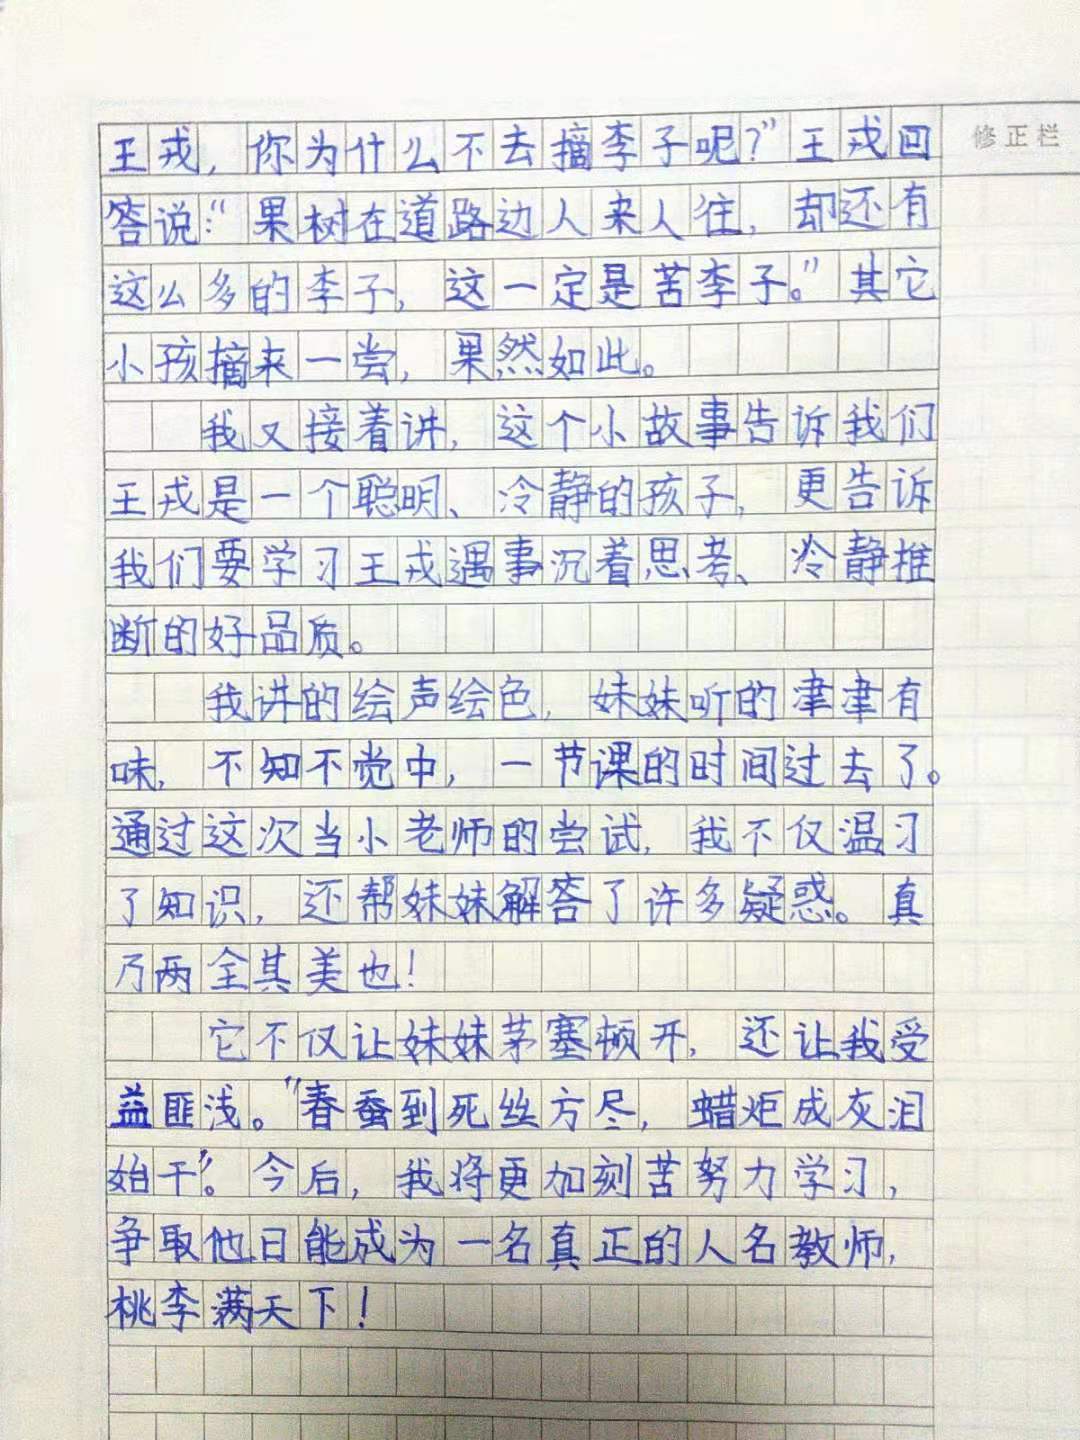 王戎，你为什么不去摘李子呢？”王戎回
修正栏
答说：“果树在道路边人来人往，却还有
这么多的李子，这一定是苦李子。”其它
小孩摘来一尝，果然如此。
我又接着讲，这个小故事告诉我们
王戎是一个聪明、冷静的孩子，更告诉
我们要学习王戎遇事沉着思考、冷静推
断的好品质。
我讲的绘声绘色，妹妹听的津津有
味，不知不觉中，一节课的时间过去了。
通过这次当小老师的尝试，我不仅温习
了知识，还帮妹妹解答了许多疑惑。真
乃两全其美也！
它不仅让妹妹茅塞顿开，还让我受
益匪浅。“春蚕到死丝方尽，蜡炬成灰泪
始干”。今后，我将更加刻苦努力学习，
争取他日能成为一名真正的人名教师，
桃李满天下！